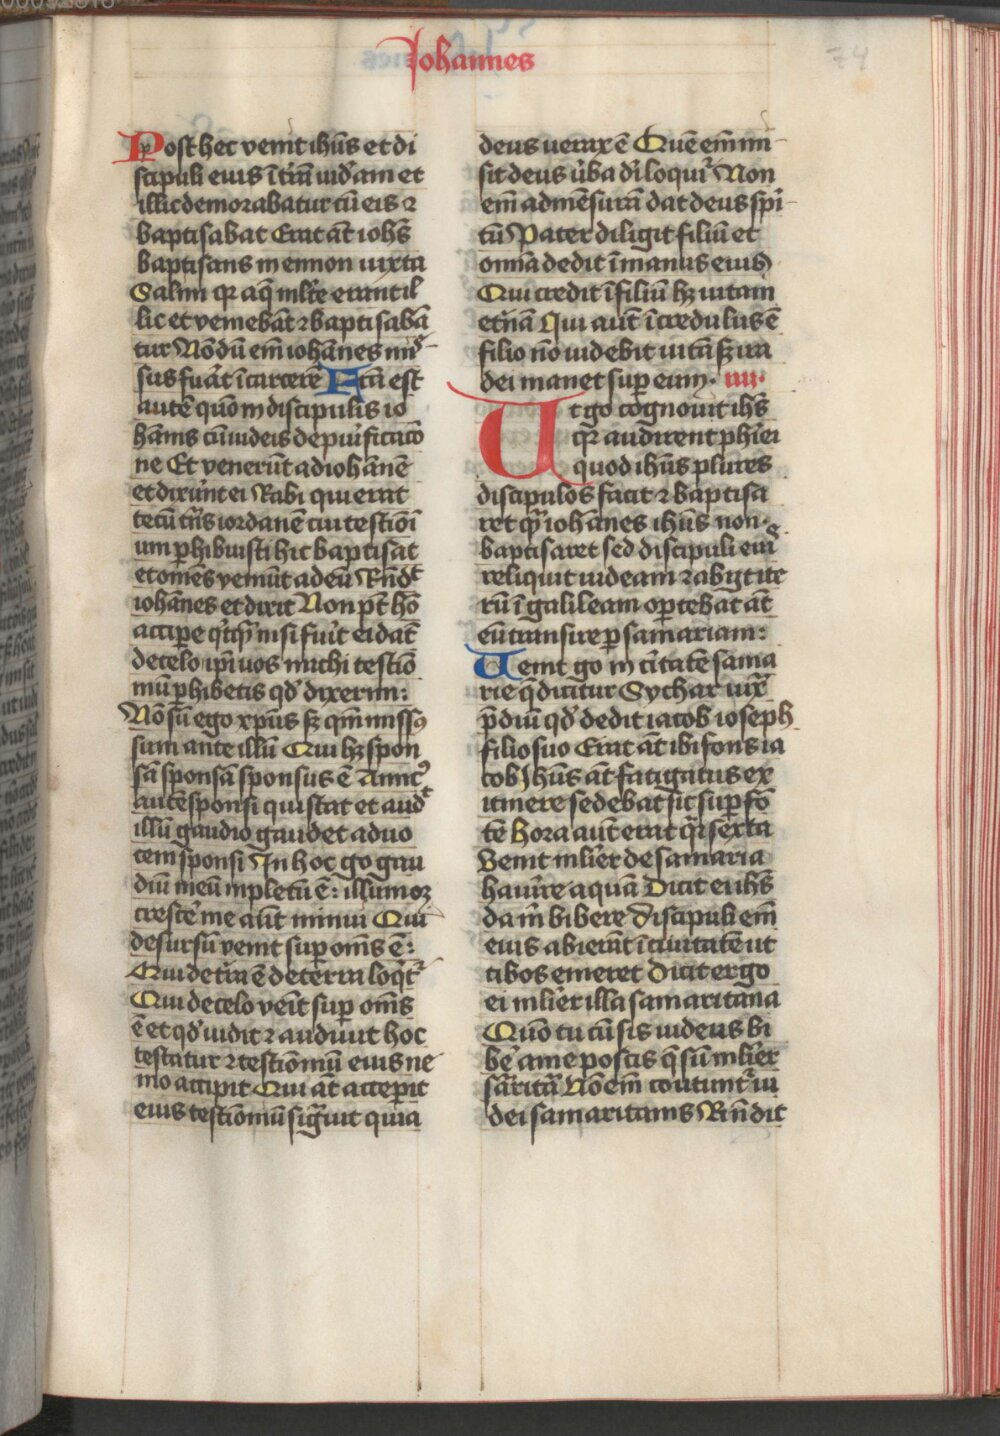 Johannes
74
Post hec venit ihūs et di
scipuli eius ī t̄rā iudeam et
illic demorabatur cū eis ⁊
baptisabat Erat āt iohēs
baptisans in ennon iuxta
Salim qr aq̄ mlte erant il
lic et veniebāt ⁊ baptisabā
tur Nōdū em̄ iohānes mis
sus fuāt ī carcerē Fcā est
autē q̄uo in discipulis io
hānis cū iudeis de puificacō
ne Et venerūt ad iohānē
et dixūnt ei Rabi qui erat
tecū tn̄s iordanē cui testioī
um phibuisti hic baptisat
et om̄es veniūt ad eū Rn̄dt
iohānes et dixit Non pt̄ hō
accipe qcq̄ nisi fuīt ei datū
de celo ip̄i vos michi testiō
niū phibetis qd dixerim:
Nō sū ego xp̄us sz qm̄ missus
sum ante illū Qui hz spon
sā sponsā sponsus ē Amicus
autē sponsi qui stat et audt
illū gaudio gaudet a dvo
cem sponsi In hoc go gau
diū meū inpletū ē: illum oz
crescē me aūt minui Qui
desursū venit sup om̄s ē:
Qui de tra ē de terra loqt
Qui de celo veīt sup om̄s
ē et qd uidit ⁊ audiuit hoc
testatur ⁊ testiōmū eius ne
mo accipit Qui āt acceperit
eius testiōmū signāuit quia
deus uerax ē Quē em̄ mi
sit deus ūba di loqur Non
em̄ ad mēsurā dat deus spi
tū Pater diligit filiū et
omīa dedit ī manus eius
Qui credit ī filiū hz uitam
etnā Qui aut īcredulus ē
filio nō uidebit uitā sz ira
dei manet sup eum. iiii.
Ut go cognouit ihs
qr audierunt phiei
quod ihūs plures
discipulos facit ⁊ baptisa
ret q̄ iohānes ihūs non
baptisaret sed discipuli eius
reliquit iudeam ⁊ abijt ite
rū ī galileam oportebat āt
eū transire p samariam:
Uenit go in ciuitatē sama
rie q̄ dicitur Sychar iuxͣ
pdiū qd dedit iacob ioseph
filio suo Erat āt ibi fons ia
cob Jhūs āt fatigatus ex
itinere sedebat sic sup fō
tē Hora aut erat qr sexta
Venit mlier de samaria
haurire aquā Dicit ei ihs
da m̄ bibere Discipuli em̄
eius abierāt ī ciuitatē ut
cibos emeret Dicit ergo
ei mlier illa samaritana
Quō tu cū sis iudeus bi
bē a me poscis q̄ sū mlier
samritā Nō em̄ coutuntr iu
dei samaritanis Rn̄dit